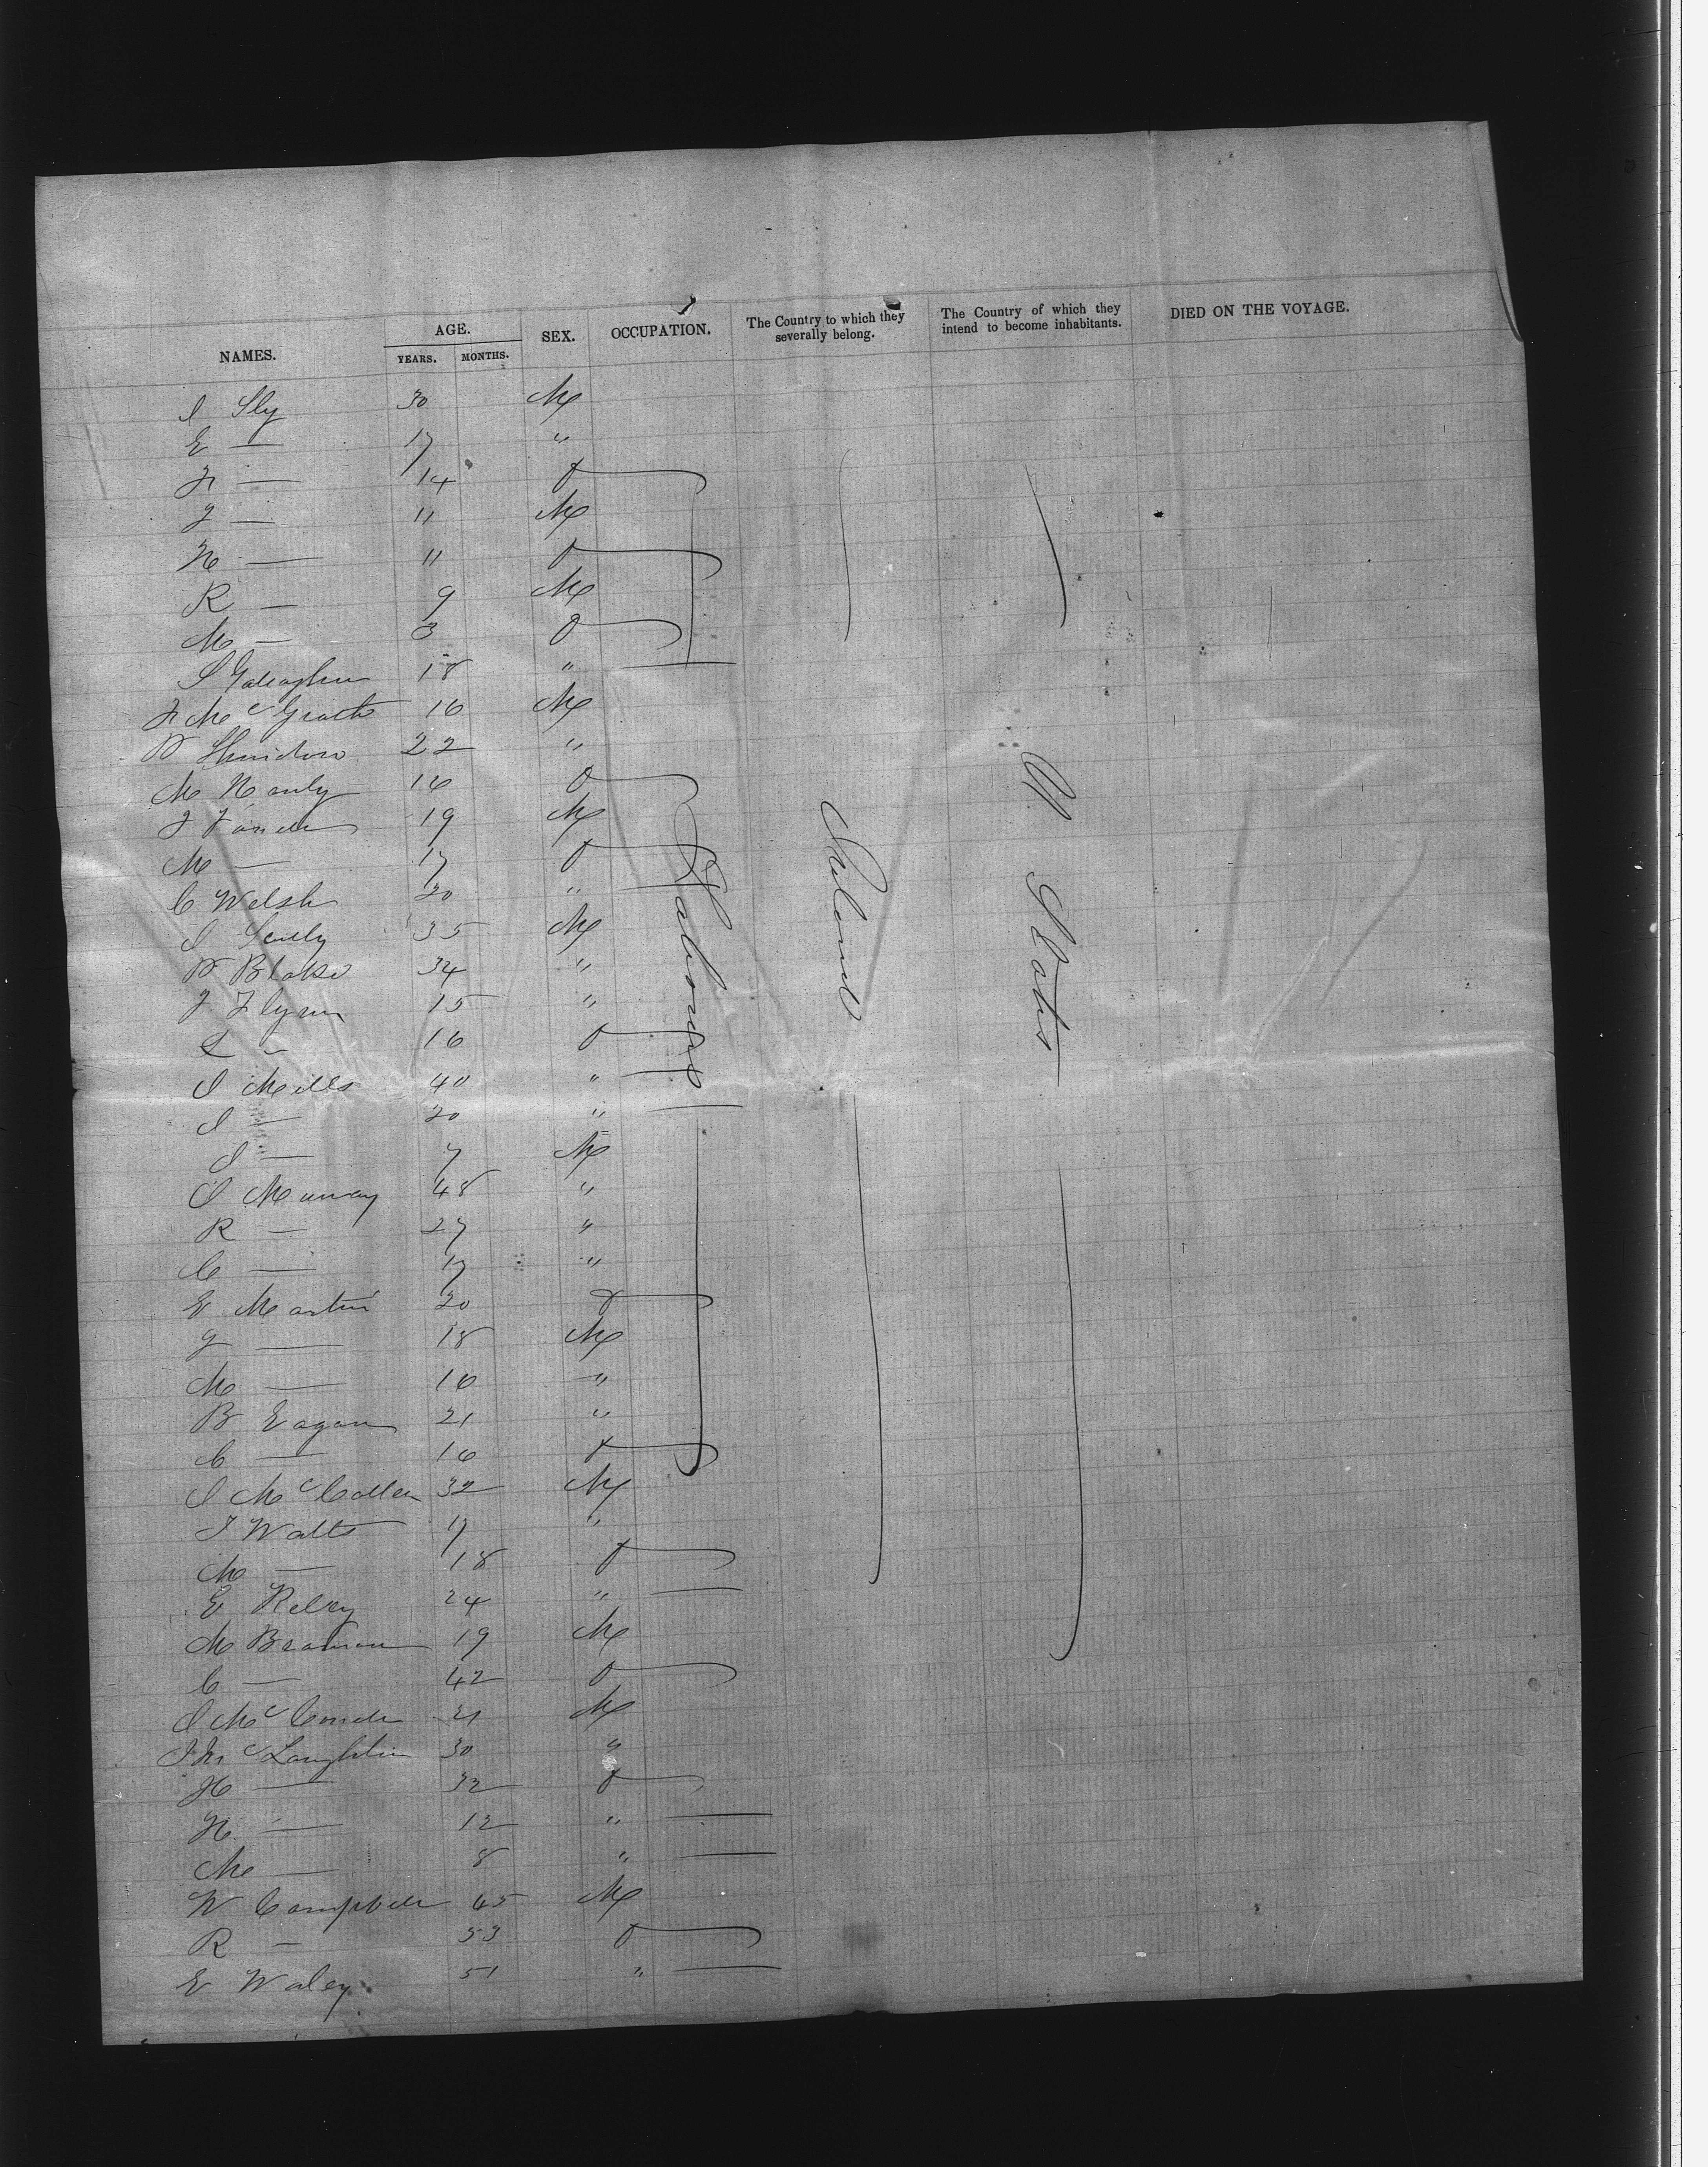 NAMES. AGE. YEARS. MONTHS. SEX. OCCUPATION. The Country to which they severally belong. The Country of which they intend to become inhabitants. DIED ON THE VOYAGE.
J Sly 30 M
E — 17 "
14 f
J — 11 M
N — 11 f
R — 9 M
M — 3 f
S Gallagher 18 "
McGrath 16 M
P Sheridan 22 "
M Hanly 16 f
J 19 M
M — 17 f
C Welsh 20 "
J Scully 35 M
P Blake 34 "
J Flynn 15 "
— 16 f
J Mills 40 "
J — 20 "
J — 7 M
J Murray 48 "
R — 27 "
C — 17 "
E Martin 20 f
J — 18 M
M — 16 "
B Eagan 21 "
C — 16 f
J McCallen 32 M
J Watts 17 "
M — 18 f
E Kelsey 24 "
M Brannan 19 M
C — 42 f
J Mc 21 M
J McLaughlin 30 "
H — 32 f
H — 12 "
M — 8 "
W Campbell 45 M
R — 53 f
E Waley 51 "
Labourers
Ireland
U States